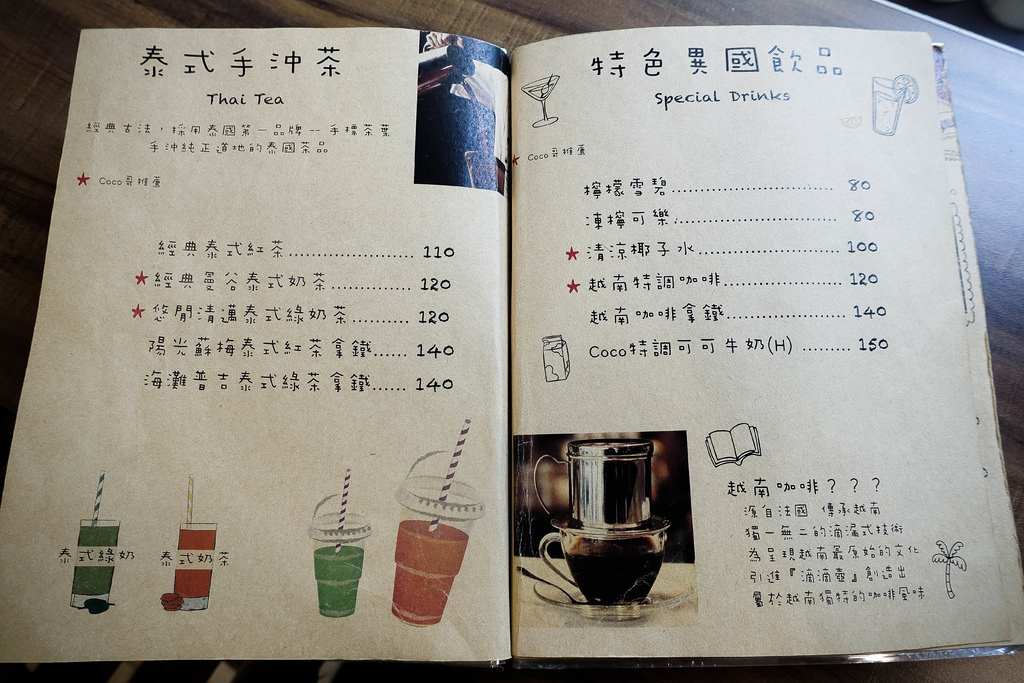 泰式手沖茶
Thai Tea
經典古法，採用泰國第一品牌--手標茶葉
手沖純正道地的泰國茶品
★ Coco哥推薦
經典泰式紅茶.................... 110
★經典曼谷泰式奶茶............. 120
★悠閒清邁泰式綠奶茶.......... 120
陽光蘇梅泰式紅茶拿鐵...... 140
海灘普吉泰式綠茶拿鐵...... 140
泰式綠奶
泰式奶茶
特色異國飲品
Special Drinks
★ Coco哥推薦
檸檬雪碧.......................... 80
凍檸可樂.......................... 80
★清涼椰子水...................... 100
★越南特調咖啡................... 120
越南咖啡拿鐵.................... 140
Coco特調可可牛奶(H) ........ 150
越南咖啡？？？
源自法國 傳承越南
獨一無二的滴漏式技術
為呈現越南最原始的文化
引進『滴滴壺』創造出
屬於越南獨特的咖啡風味